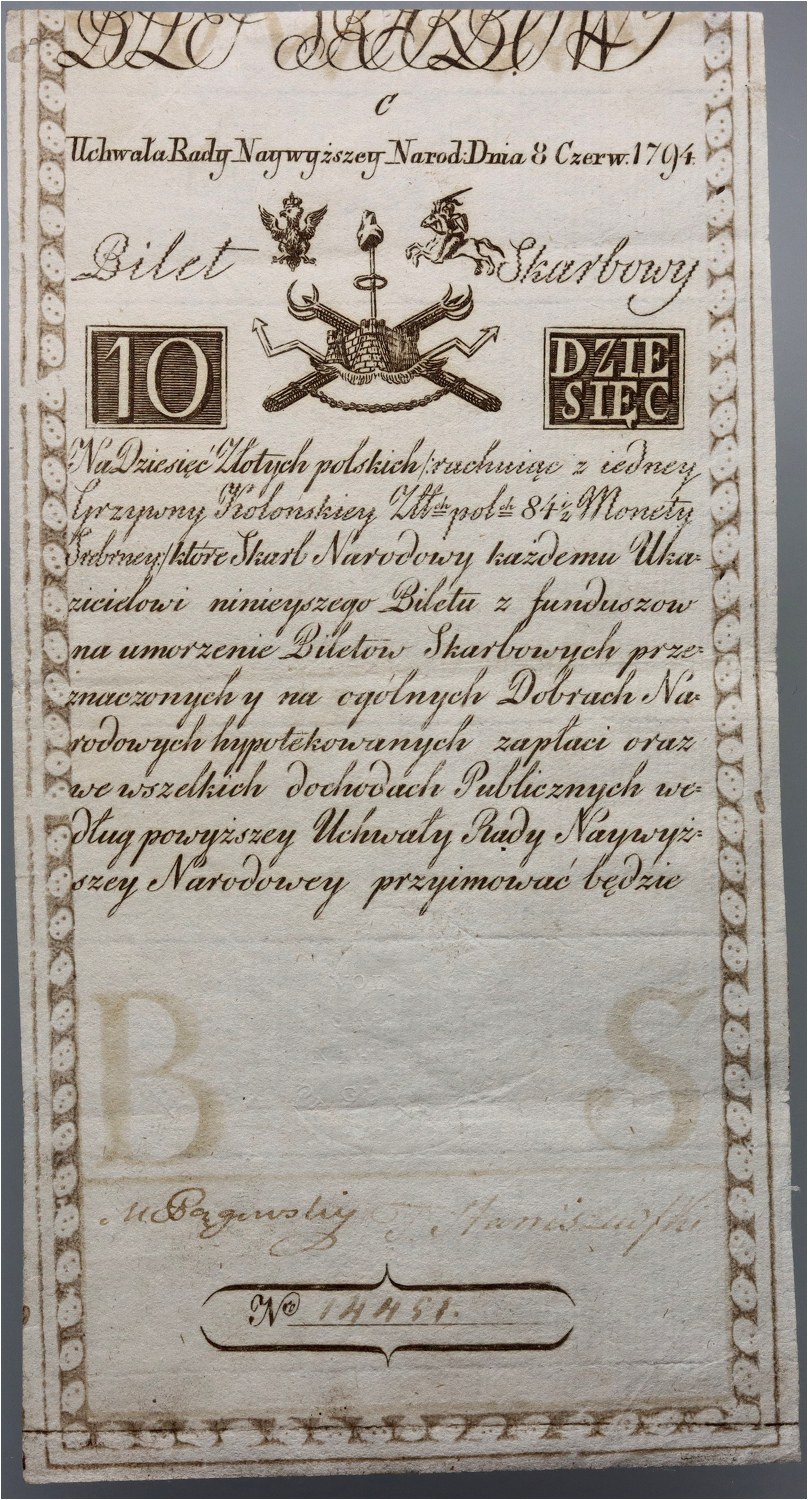 BILET SKARBOWY
C
Uchwała Rady Naywyższey Narod: Dnia 8 Czerw. 1794.
Bilet Skarbowy
10 DZIE
SIĘĆ
Na Dziesięć Złotych polskich /:rachuiąc z iedney
Grzywny Kolonskiey Złt:ch pol:ch 84½ Monety
Srebrney:/ które Skarb Narodowy każdemu Uka=
zicielowi ninieyszego Biletu z funduszow
na umorzenie Biletow Skarbowych prze=
znaczonych y na ogólnych Dobrach Na=
rodowych hypotekowanych zapłaci oraz
we wszelkich dochodach Publicznych we=
dług powyższey Uchwały Rady Naywyż=
szey Narodowey przyimować będzie
B S
M Pągowski Staniszewski
Nro 14451.